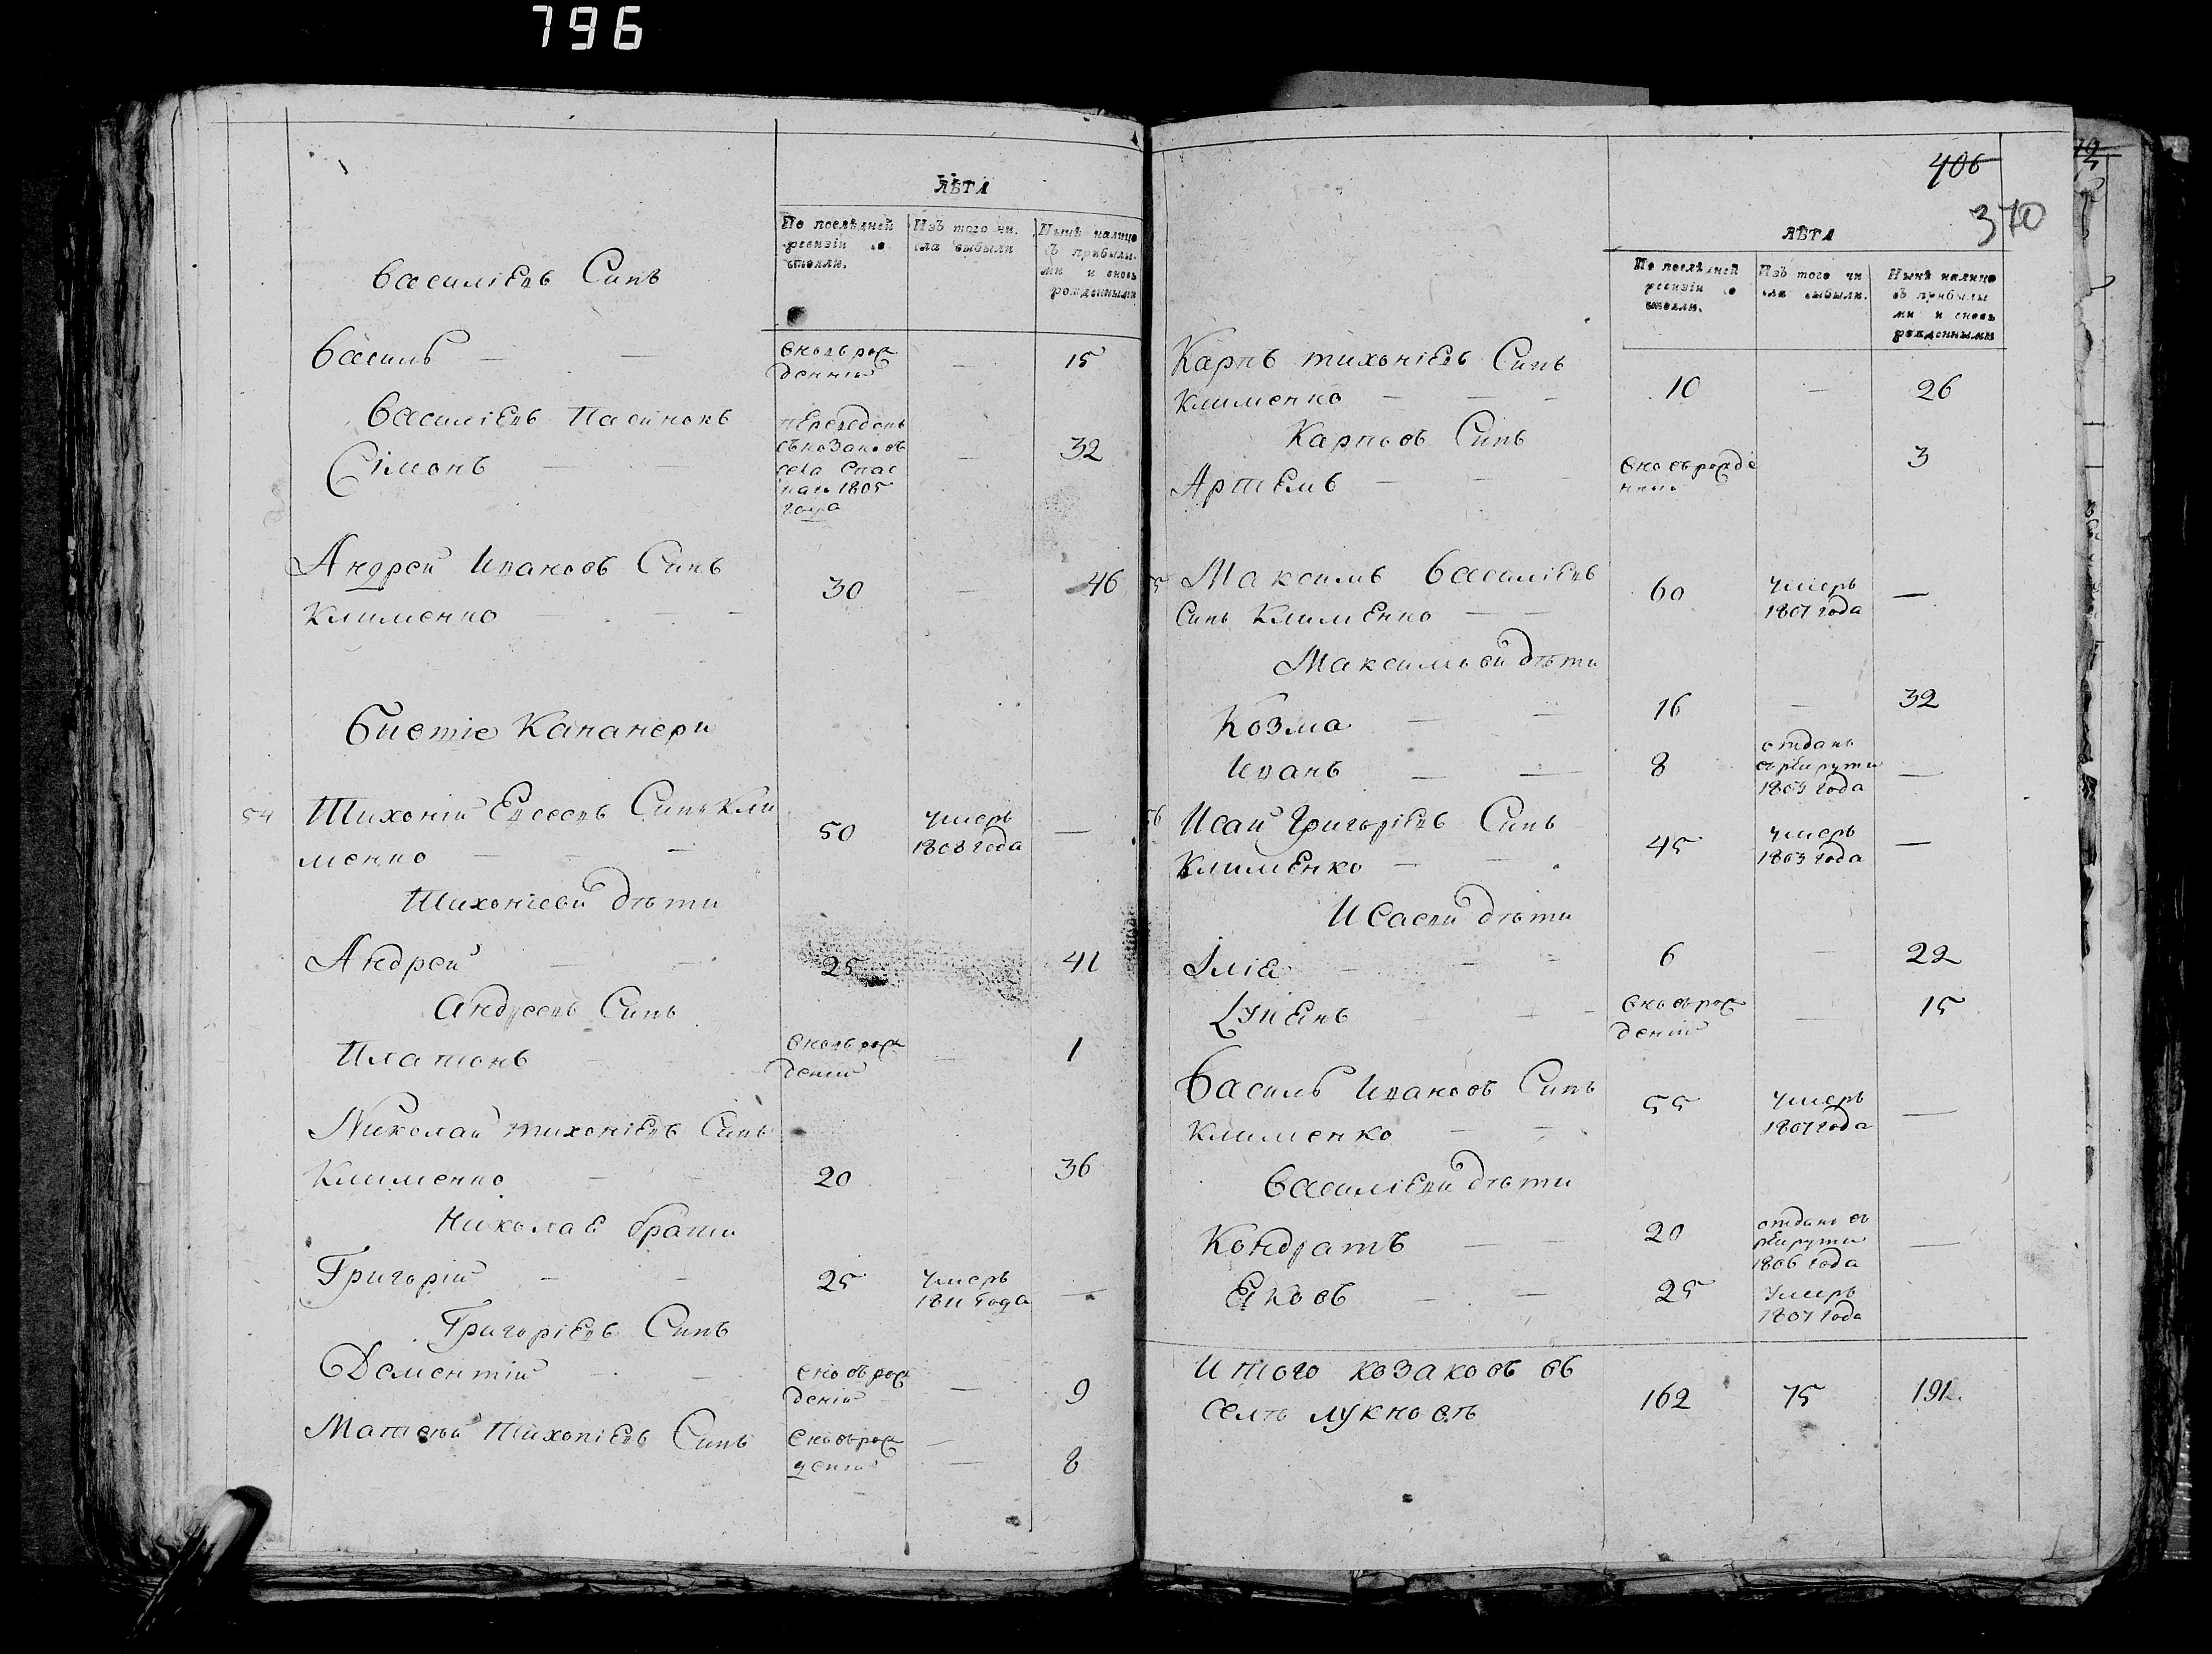 796
ЛѢТА
По послѣдней ревизіи состояли.
Изъ того числа выбыли
Нынѣ налицо съ прибылыми и вновь рожденными
Василіевъ Синъ
Василь — —
вновьрож
деннiй
—
15
Василіевъ Пасинокъ
Сімонъ — —
села Спас
1805
года
—
32
Андрей Ивановъ Синъ
Клименко — — —
30
—
46
Бистіе Канонери
54
Тихоній Евсеевъ Синъ Кли
менко — — —
50
умеръ
1808 года
—
Тихоніеви дѣти
Андрей — —
25
41
Андреевъ Синъ
Платонъ —
вновьрож
деній
—
1
Николай тихоніевъ Синъ
Клименко — —
20
36
Николае брати
Григорій — —
25
умеръ
1811 Года
—
Григоріевъ Синъ
Дементій —
вновьрож
деній
—
9
Матвѣй Тихоніевъ Синъ
вновьрож
деній
—
8
406
370
ЛѢТА
По послѣдней ревизіи состояли.
Изъ того числа выбыли.
Нынѣ налицо съ прибылыми и вновь рожденными
Карпъ тихоніевъ Синъ
Клименко — — —
10
—
26
Карповъ Синъ
Артемъ — —
вновьрожде
3
Максимъ Василіевъ
Синъ Клименко — —
60
умеръ
1807 года
—
Максимови дѣти
Козма — —
16
—
32
Иванъ — —
8
отданъ
врекрути
1803 года
—
Исай Григоріевъ Синъ
Клименко — —
45
умеръ
1803 года
—
Исаеви дѣти
Іліа — — —
6
—
22
вновьрож
деній
—
15
Василь Ивановъ Синъ
Клименко — —
55
умеръ
1807 года
—
Василіеви дѣти
Кондратъ — —
20
отданъ въ
рекрути
1806 года
—
Яковъ — —
25
умеръ
1807 года
Итого козаковъ въ
селѣ лукновѣ
162
75
191